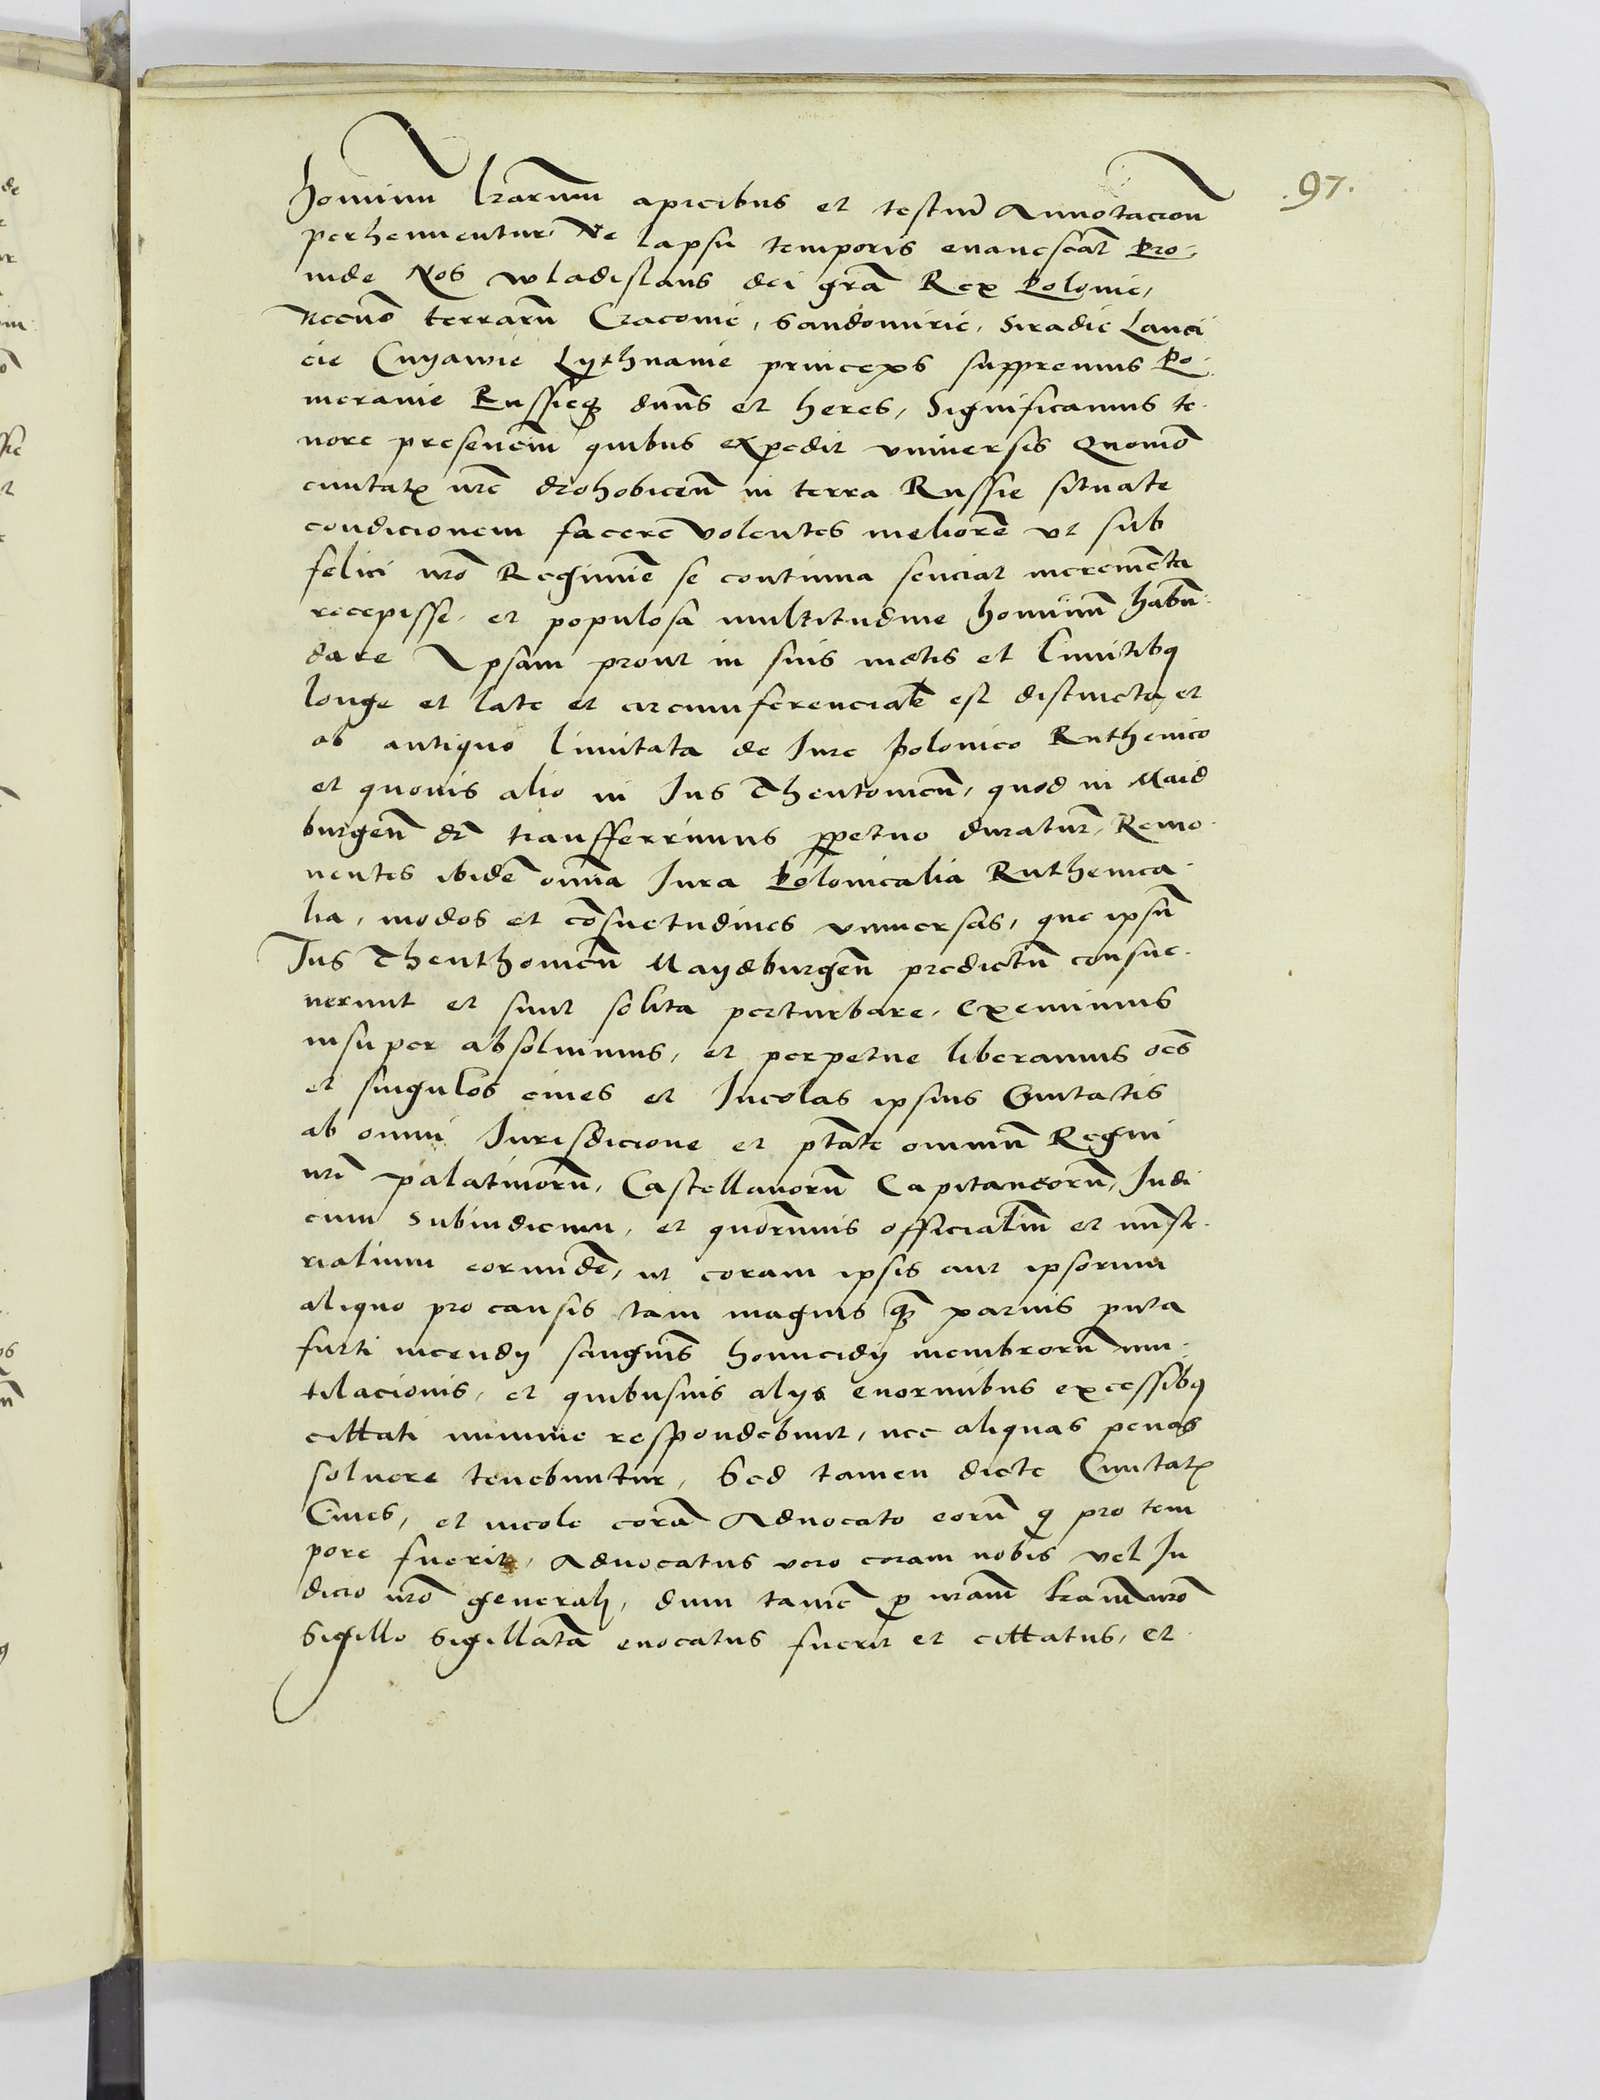 .97.
hominu lrarum apicibus et testiu Annotacion
perhennentur Ne lapsu temporis euanescat Pro-
inde Nos wladislaus dei gra Rex Polonie,
Necno terraru Cracouie, Sandomirie, Siradie Lanci
cie Cuyawie Lythuanie princeps suppremus Po-
meranie Russieq duns et heres, Significamus te-
nore presenciu quibus expedit vniuersis Quomo
ciuitatis nre drohobicen in terra Russie situate
condicionem facere volentes meliore vt sub
felici nro Regimine se continua senciat incrementa
recepisse, et populosa multitudine hominu habun-
dare Ipsam prout in suis metis et limitibq
longe et late et circumferencialr est distincta et
ab antiquo limitata de Jure polonico Ruthenico
et quouis alio in Jus Theutonicu, quod in Maid
burgen dr transfferrimus ppetuo duratur, Remo-
uentes ibide omia Jura Polonicalia Ruthenica-
lia, modos et cosuetudines vniuersas, que ipsu
Jus Theuthonicu Maydburgen predictu consue-
uerunt et sunt solita perturbare, eximimus
insuper absoluimus, et perpetue liberamus oes
et singulos ciues et Incolas ipsius Ciuitatis
ab omni Jurisdicione et ptate omniu Regni
nri palatinoru, Castellanoru Capitaneoru, Judi
cium Subiudicum, et quorumuis officialiu et miste-
rialium eorunde, ut coram ipsis aut ipsorum
aliquo pro causis tam magnis qz paruis puta
furti incendy sanguis homicidy membroru mu-
tilacionis, et quibusuis alys enormibus excessibq
cittati minime respondebunt, nec aliquas penas
soluere tenebuntur, Sed tamen dicte Ciuitatis
Ciues, et incole cora Aduocato eoru q pro tem
pore fuerit, Aduocatus vero coram nobis vel Ju
dicio nro generali, dum tame p nram lram nro
Sigillo Sigillata euocatus fuerit et cittatus, et